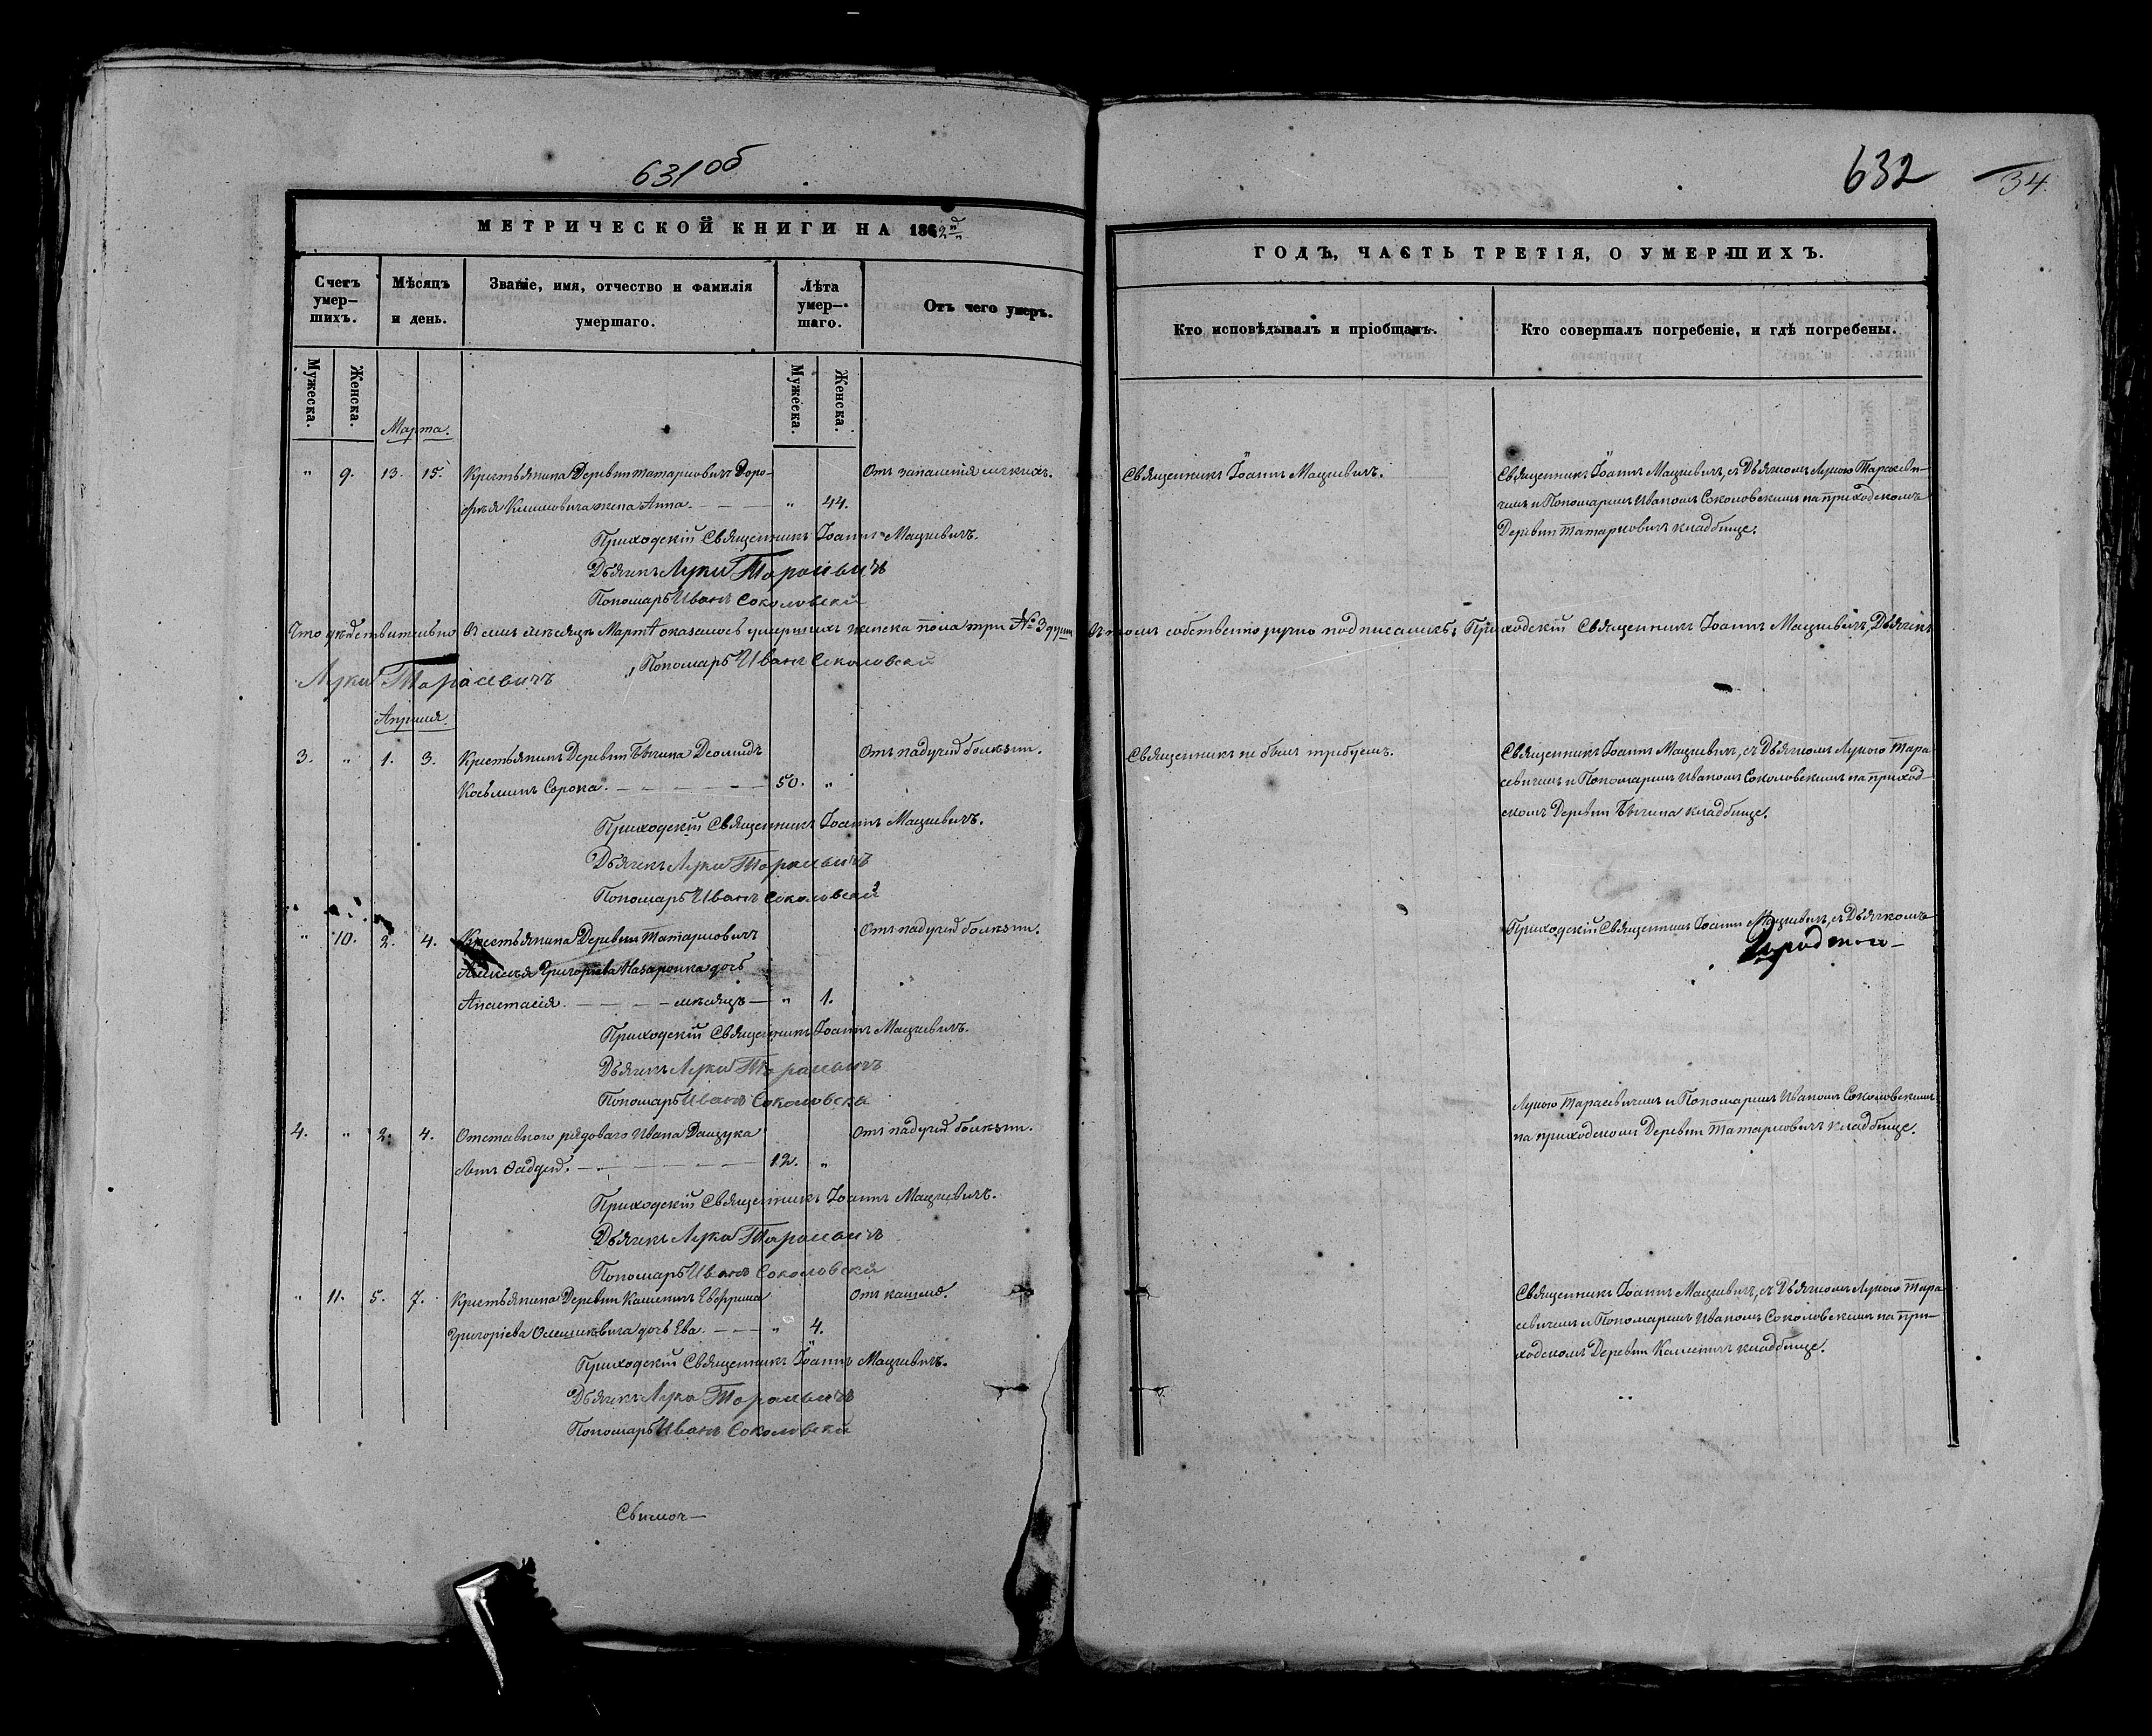 631об
МЕТРИЧЕСКОЙ КНИГИ НА 1862й
Счетъ умер-
шихъ.
Мѣсяцъ
и день.
Званіе, имя, отчество и фамилія
умершаго.
Лѣта
умер-
шаго.
Отъ чего умеръ.
Мужеска.
Женска.
Мужеска.
Женска.
Марта.
" 9. 13. 15. Крестьянина Деревни Татарновичъ Доро-
фея Климовича жена Анна. " 44. Отъ запаленія легкихъ.
Приходскій Священникъ Іоаннъ Мацкевичъ.
Дьячекъ Лука Тарасевичъ
Пономарь Иванъ Соколовскій
Что дѣйствительно въ семъ мѣсяцѣ Мартѣ оказалось умершихъ женска пола три № 3 души
Лука Тарасевичъ
, Пономарь Иванъ Соколовскій
Апрѣля.
3. " 1. 3. Крестьянинъ Деревни Бѣгина Деомидъ
Козьминъ Сорока. 50. " Отъ падучей болѣзни.
Приходскій Священникъ Іоаннъ Мацкевичъ.
Дьячекъ Лука Тарасевичъ
Пономарь Иванъ Соколовскій
" 10. 2. 4. Крестьянина Деревни Татарновичъ
Алексѣя Григорьева Назаронка дочь
Анастасія. мѣсяцъ " 1. Отъ падучей болѣзни.
Приходскій Священникъ Іоаннъ Мацкевичъ.
Дьячекъ Лука Тарасевичъ
Пономарь Иванъ Соколовскій
4. " 2. 4. Отставного рядоваго Ивана Данцука
сынъ Фаддей. 12. " Отъ падучей болѣзни.
Приходскій Священникъ Іоаннъ Мацкевичъ.
Дьячекъ Лука Тарасевичъ
Пономарь Иванъ Соколовскій
" 11. 5. 7. Крестьянина Деревни Каленичъ
Григорьева дочь Ева. " 4. Отъ кашля.
Приходскій Священникъ Іоаннъ Мацкевичъ.
Дьячекъ Лука Тарасевичъ
Пономарь Иванъ Соколовскій
632
34
ГОДЪ, ЧАСТЬ ТРЕТІЯ, О УМЕРШИХЪ.
Кто исповѣдывалъ и пріобщалъ.
Кто совершалъ погребеніе, и гдѣ погребены.
Священникъ Іоаннъ Мацкевичъ.
Священникъ Іоаннъ Мацкевичъ, съ Дьячкомъ Лукою Тарасеви-
чемъ и Пономаремъ Иваномъ Соколовскимъ на приходскомъ
Деревни Татарновичъ кладбище.
въ томъ собственноручно подписались: Приходскій Священникъ Іоаннъ Мацкевичъ, Дьячекъ
Священникъ не былъ требуемъ.
Священникъ Іоаннъ Мацкевичъ, съ Дьячкомъ Лукою Тара
севичемъ и Пономаремъ Иваномъ Соколовскимъ на приход-
скомъ Деревни Бѣгина кладбище.
Приходскій Священникъ Іоаннъ Мацкевичъ, съ Дьячкомъ
Лукою Тарасевичемъ и Пономаремъ Иваномъ Соколовскимъ
на приходскомъ Деревни Татарновичъ кладбище.
Священникъ Іоаннъ Мацкевичъ, съ Дьячкомъ Лукою Тара
севичемъ и Пономаремъ Иваномъ Соколовскимъ на при-
ходскомъ Деревни Каленичъ кладбище.